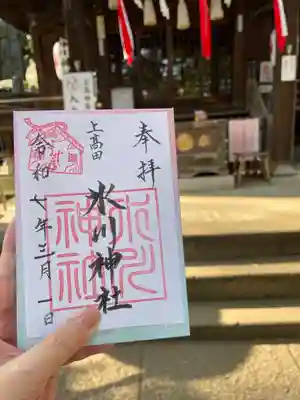 奉拝
上高田
氷川神社
氷川
神社
令和七年三月一日